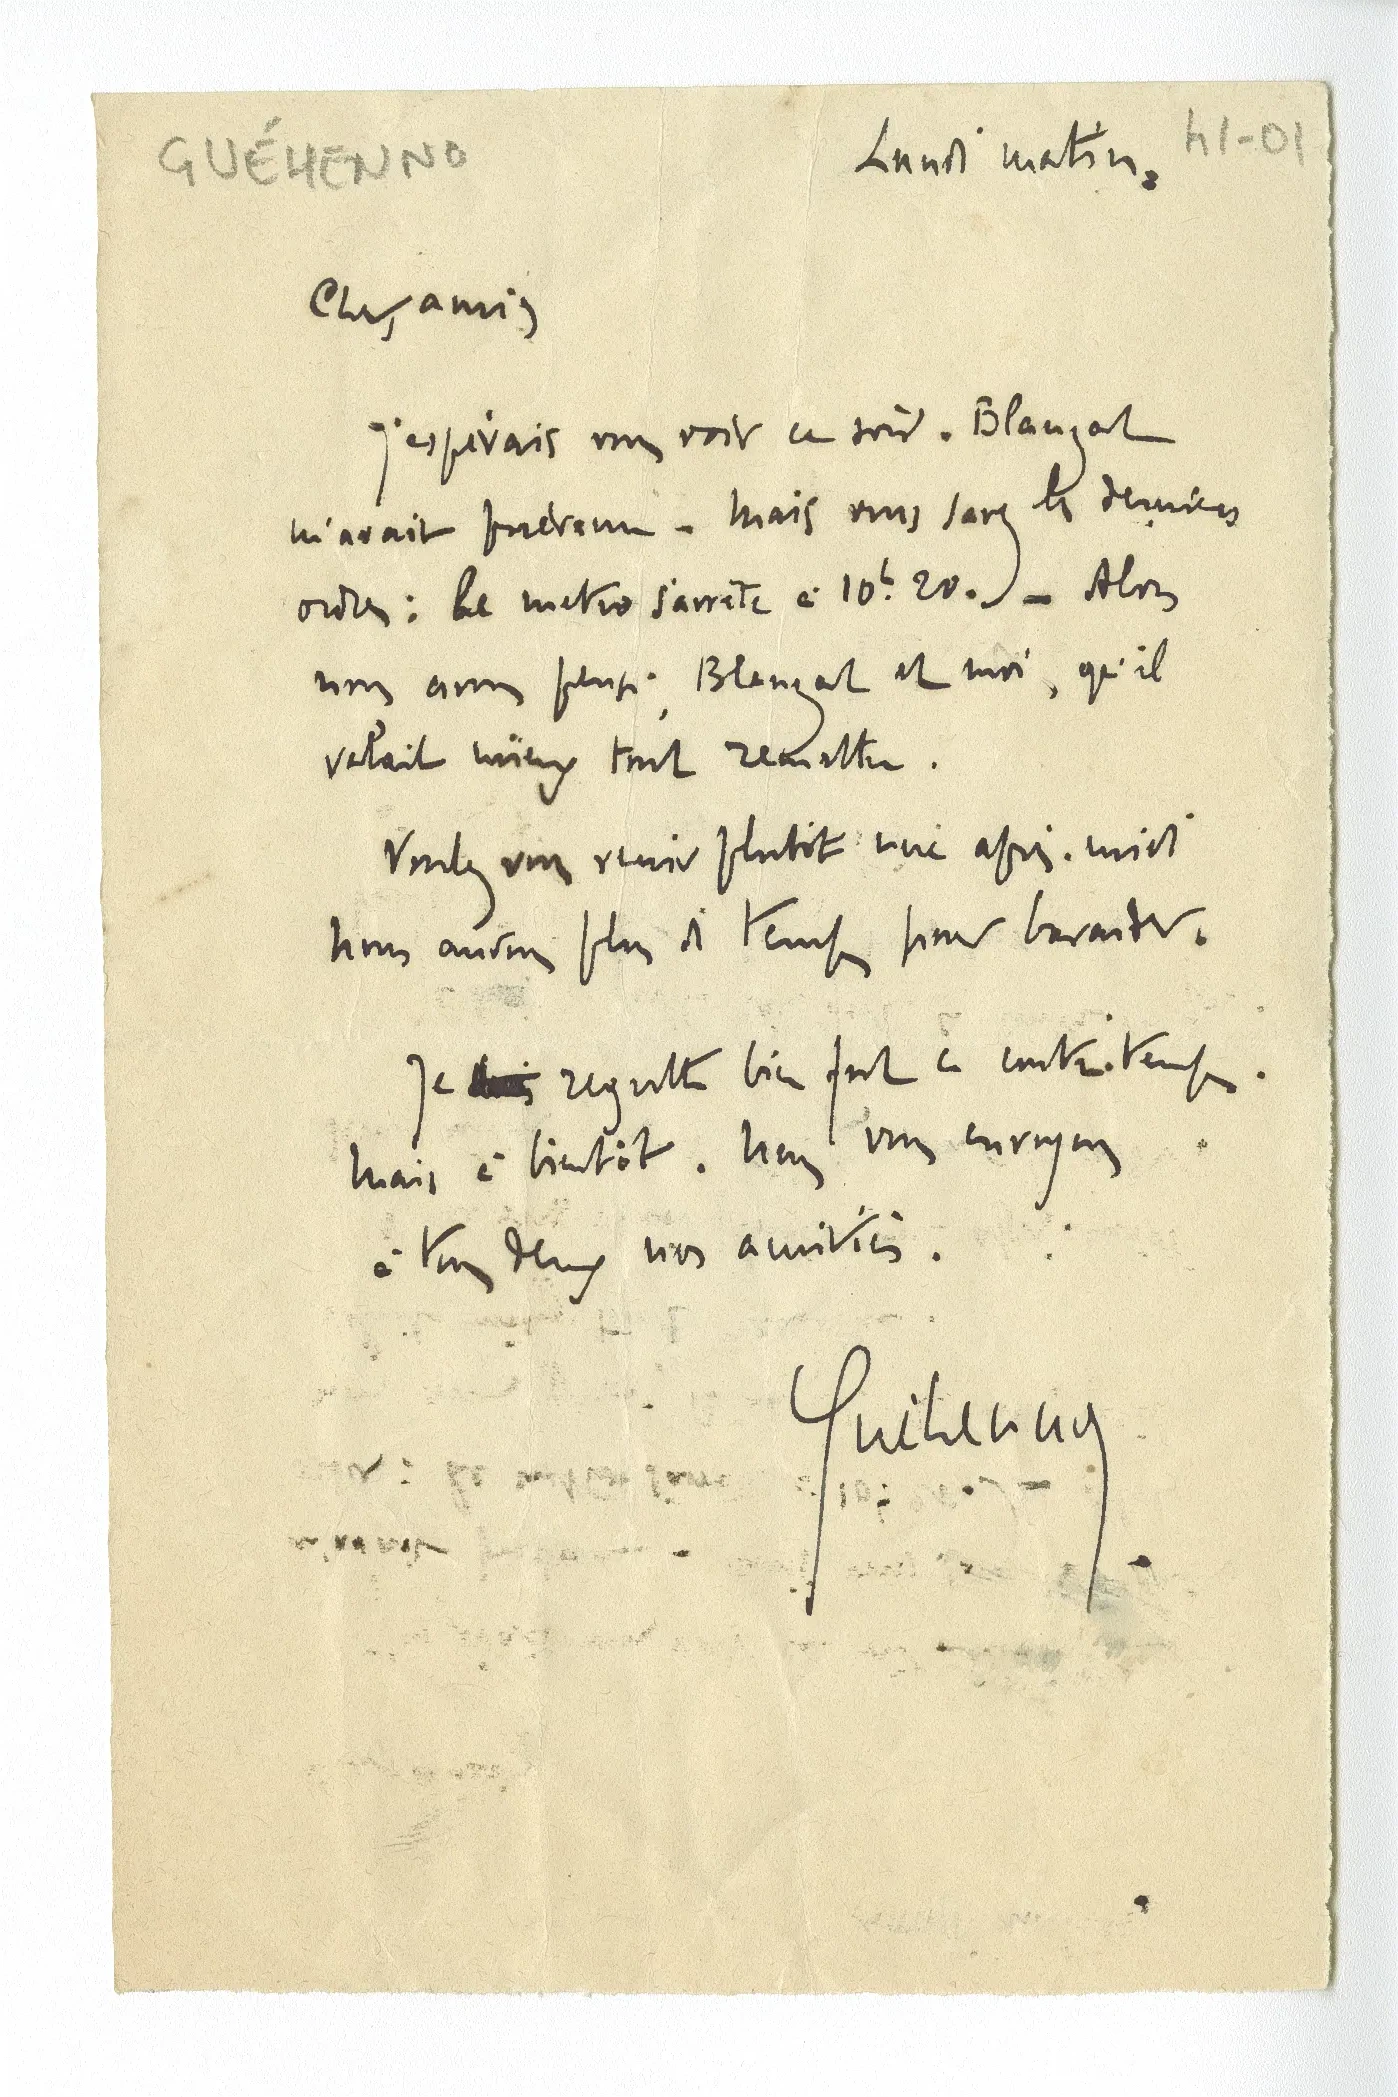 GUÉHENNO
Lundi matin.
14-01
Chers amis
J'espérais vous voir ce soir. Blanzat
m'avait prévenu - Mais vous savez les derniers
ordres : Le metro s'arrête à 10h. 20. - Alors
nous avons pensé, Blanzat et moi, qu'il
valait mieux tout remettre.
Voulez vous venir plutôt une après-midi
Nous aurons plus de temps pour bavarder.
Je regrette bien fort ce contre-temps.
Mais à bientôt. Nous vous envoyons
à tous deux nos amitiés.
Guéhenno